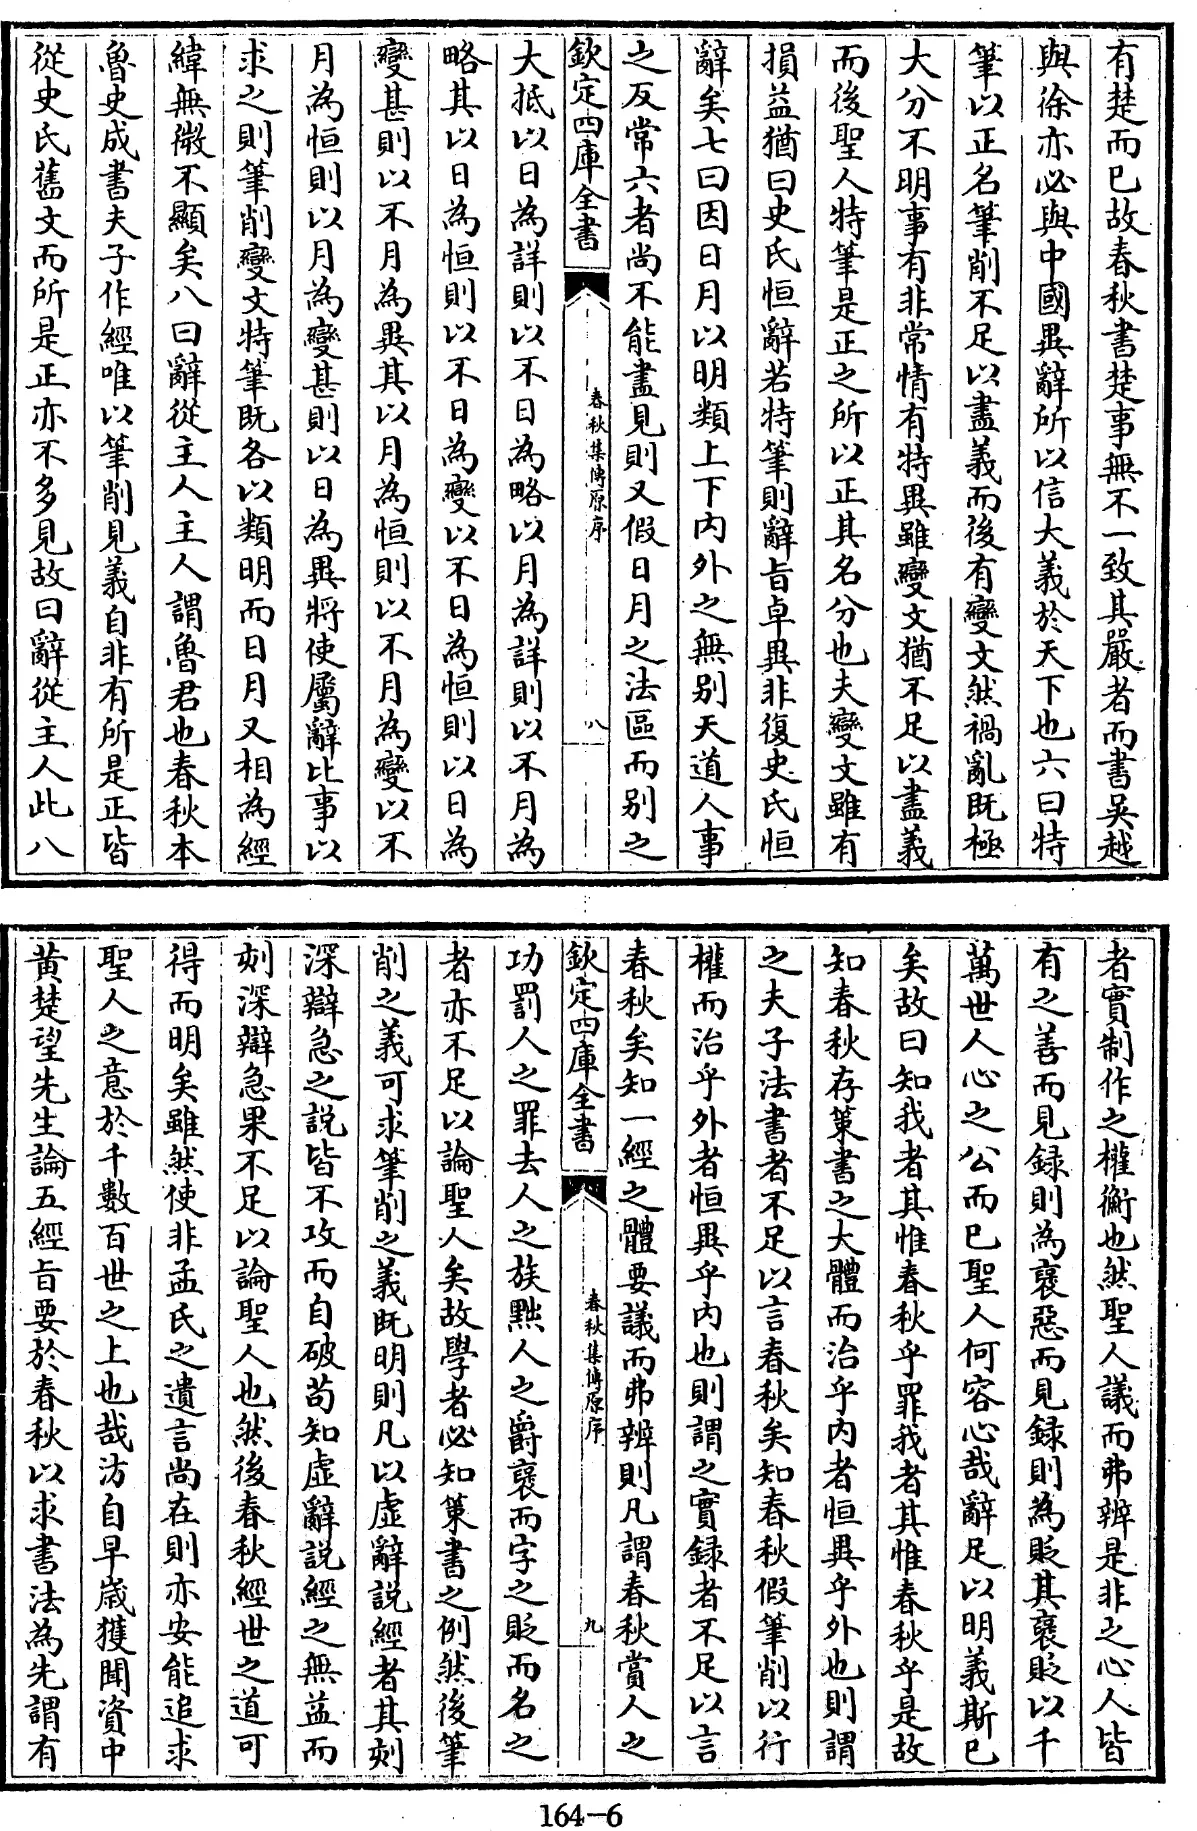 有楚而已故春秋書楚事無不一致其嚴者而書吳越
與徐亦必與中國異辭所以信大義於天下也六曰特
筆以正名筆削不足以盡義而後有變文然禍亂既極
大分不明事有非常情有特異雖變文猶不足以盡義
而後聖人特筆是正之所以正其名分也夫變文雖有
損益猶曰史氏恒辭若特筆則辭旨卓異非復史氏恒
辭矣七曰因日月以明類上下内外之無别天道人事
之反常六者尚不能盡見則又假日月之法區而别之
欽定四庫全書
春秋集傳原序
八
大抵以日為詳則以不日為略以月為詳則以不月為
略其以日為恒則以不日為變以不日為恒則以日為
變甚則以不月為異其以月為恒則以不月為變以不
月為恒則以月為變甚則以日為異將使屬辭比事以
求之則筆削變文特筆既各以類明而日月又相為經
緯無微不顯矣八曰辭從主人主人謂魯君也春秋本
魯史成書夫子作經唯以筆削見義自非有所是正皆
從史氏舊文而所是正亦不多見故曰辭從主人此八
者實制作之權衡也然聖人議而弗辨是非之心人皆
有之善而見録則為襃惡而見録則為貶其襃貶以千
萬世人心之公而已聖人何容心哉辭足以明義斯已
矣故曰知我者其惟春秋乎罪我者其惟春秋乎是故
知春秋存策書之大體而治乎内者恒異乎外也則謂
之夫子法書者不足以言春秋矣知春秋假筆削以行
權而治乎外者恒異乎内也則謂之實録者不足以言
春秋矣知一經之體要議而弗辨則凡謂春秋賞人之
欽定四庫全書
春秋集傳原序
九
功罰人之罪去人之族黜人之爵襃而字之貶而名之
者亦不足以論聖人矣故學者必知策書之例然後筆
削之義可求筆削之義既明則凡以虚辭説經者其刻
深辯急之説皆不攻而自破苟知虚辭説經之無益而
刻深辯急果不足以論聖人也然後春秋經世之道可
得而明矣雖然使非孟氏之遺言尚在則亦安能追求
聖人之意於千數百世之上也哉汸自早歳獲聞資中
黄楚望先生論五經旨要於春秋以求書法為先謂有
164-6